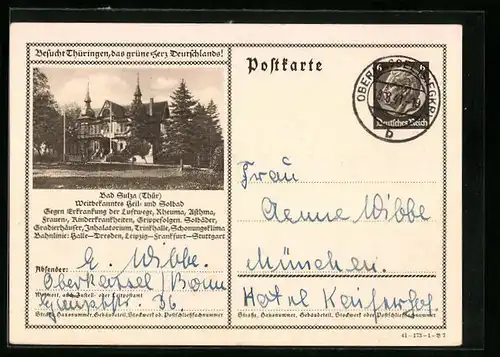 Besucht Thüringen, das grüne Herz Deutschlands!
Bad Sulza (Thür)
Weltbekanntes Heil- und Solbad
Gegen Erkrankung der Luftwege, Rheuma, Asthma,
Frauen-, Kinderkrankheiten, Grippefolgen. Solbäder,
Gradierhäuser, Inhalatorium, Trinkhalle, Schonungsklima
Bahnlinie: Halle–Dresden, Leipzig–Frankfurt–Stuttgart
Absender:
E. Wibbe.
Oberkassel/Bonn
Wohnort, auch Zustell- oder Leitpostamt
36.
Straße, Hausnummer, Gebäudeteil, Stockwerk od. Postschließfachnummer
Postkarte
Deutsches Reich
b
Frau
Aenne Wibbe
München.
Hotel Kaiserhof.
Straße, Hausnummer, Gebäudeteil, Stockwerk oder Postschließfachnummer